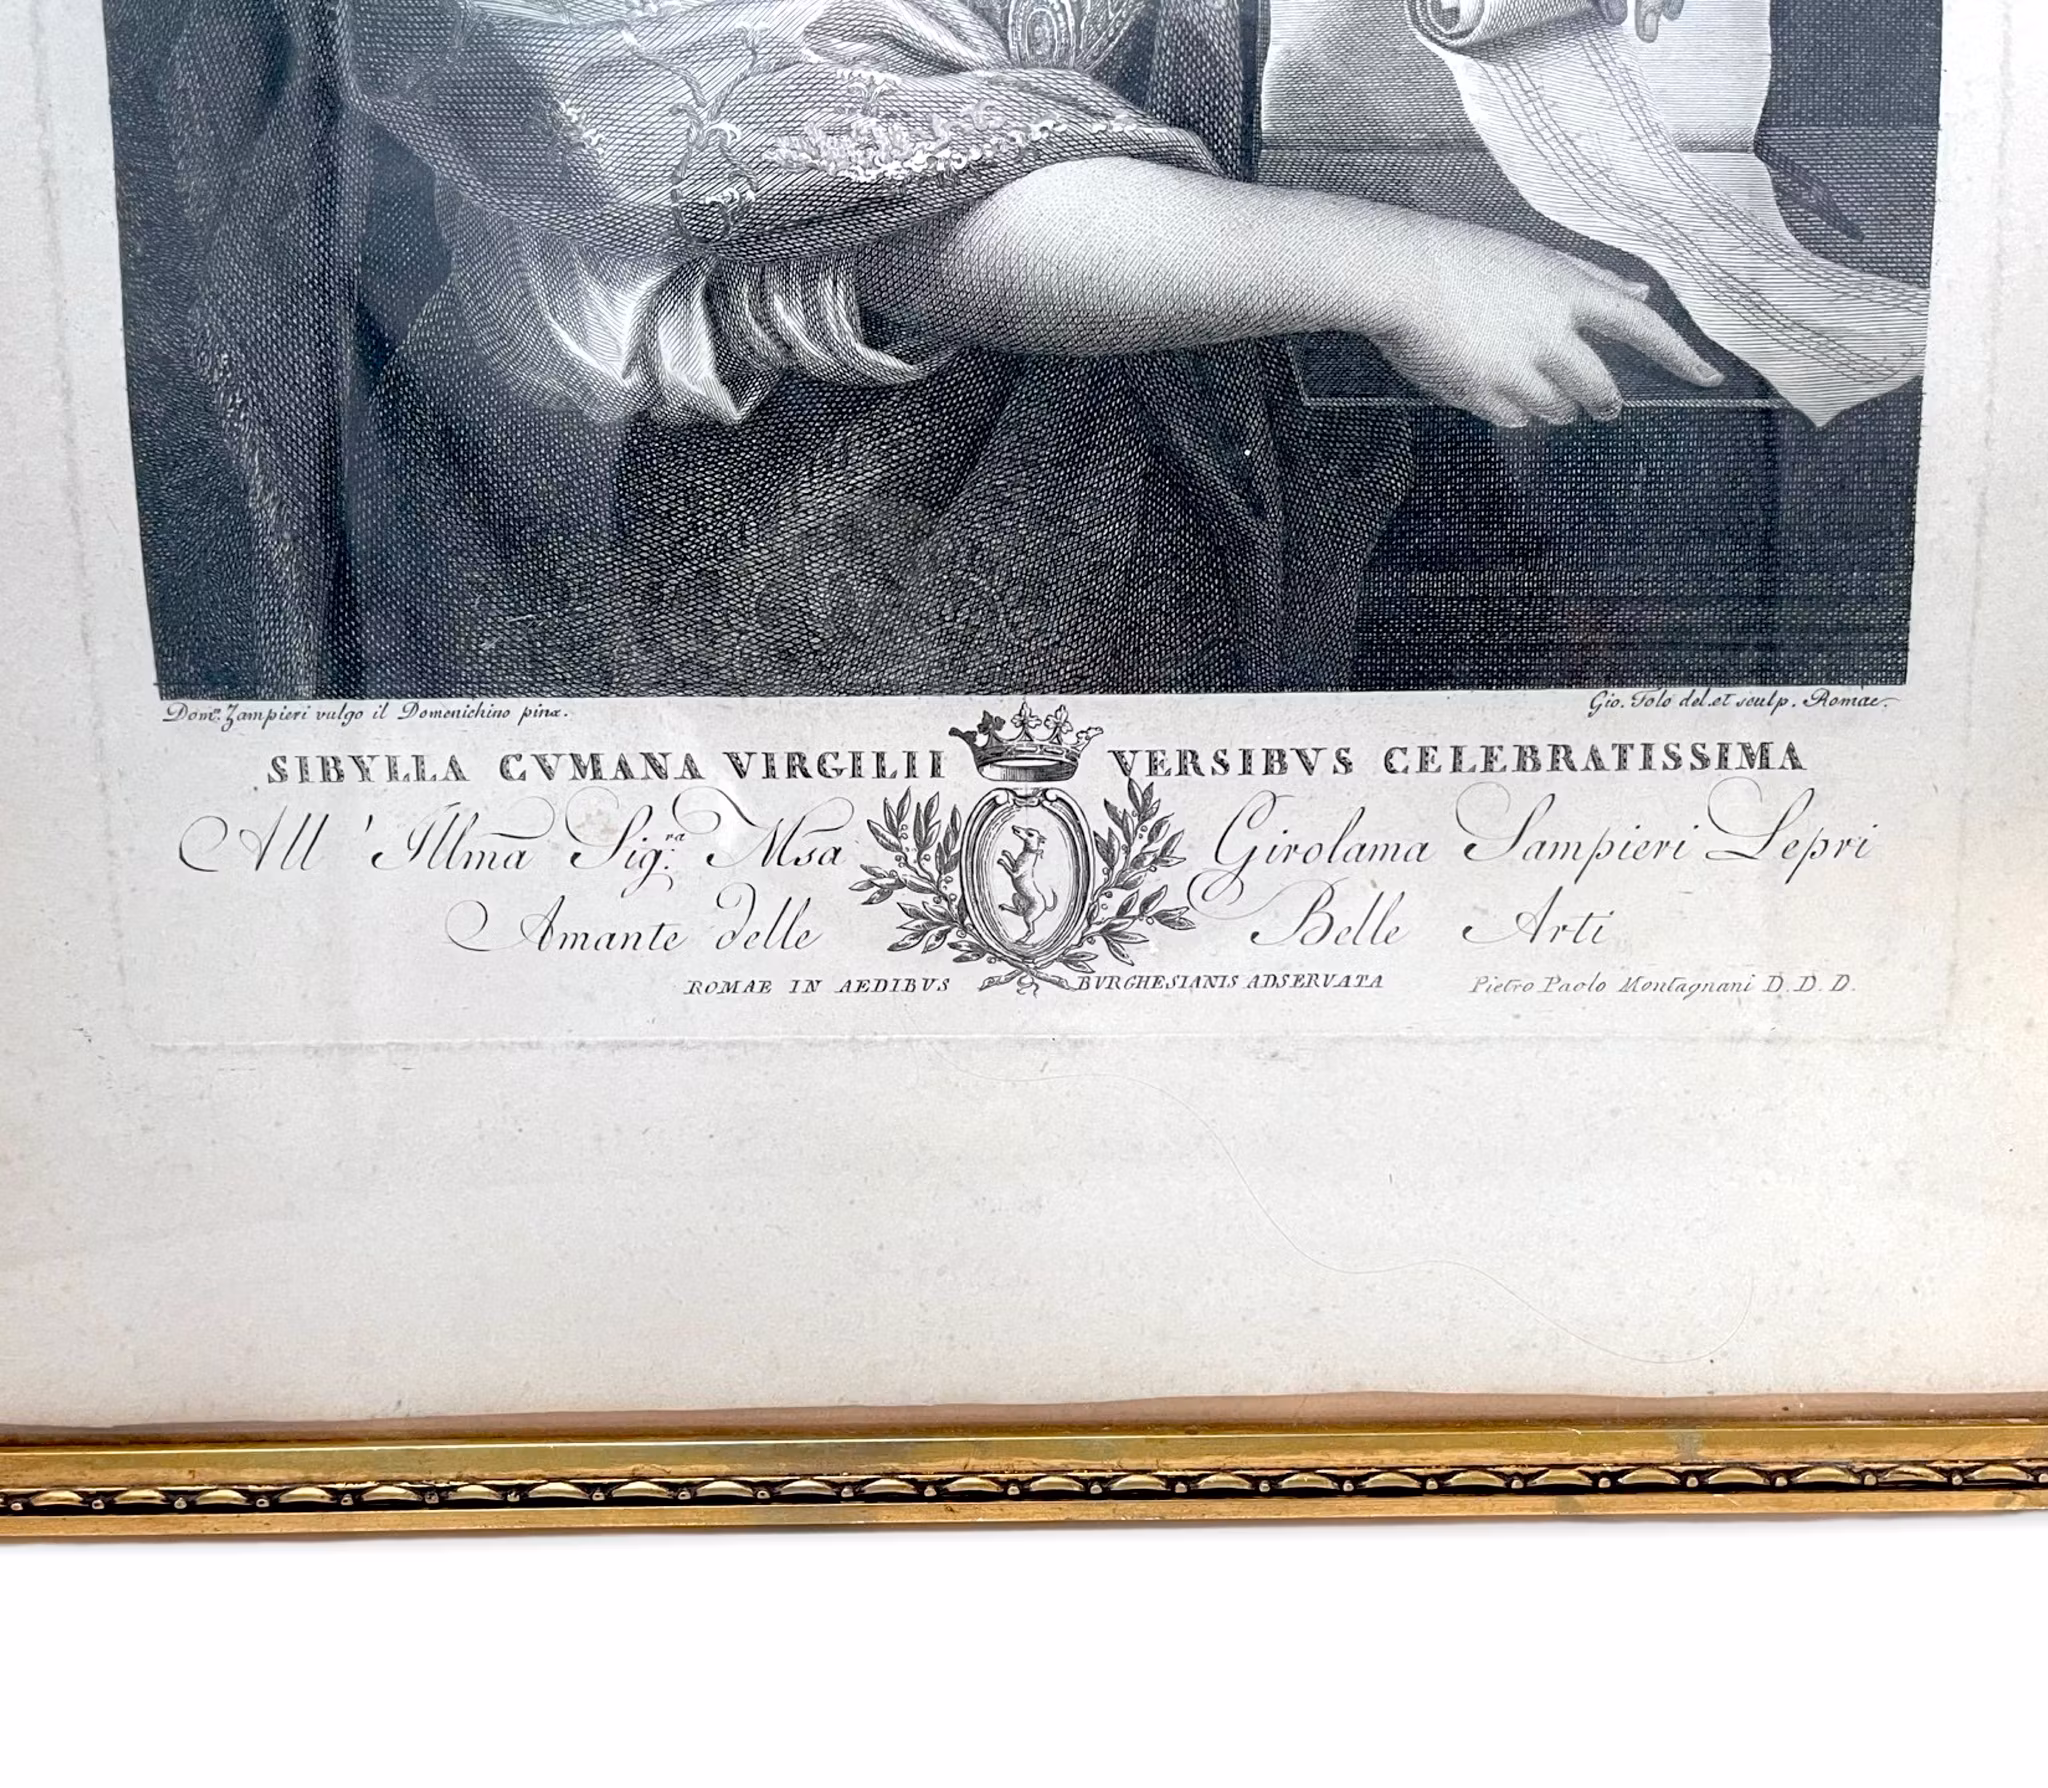 Dom.co Zampieri vulgo il Domenichino pinx.
Gio. Folo del. et sculp. Romae.
SIBYLLA CVMANA VIRGILII VERSIBVS CELEBRATISSIMA
All' Illma Sig.ra Msa Girolama Sampieri Lepri
Amante delle Belle Arti
ROMAE IN AEDIBVS BVRGHESIANIS ADSERVATA
Pietro Paolo Montagnani D. D. D.